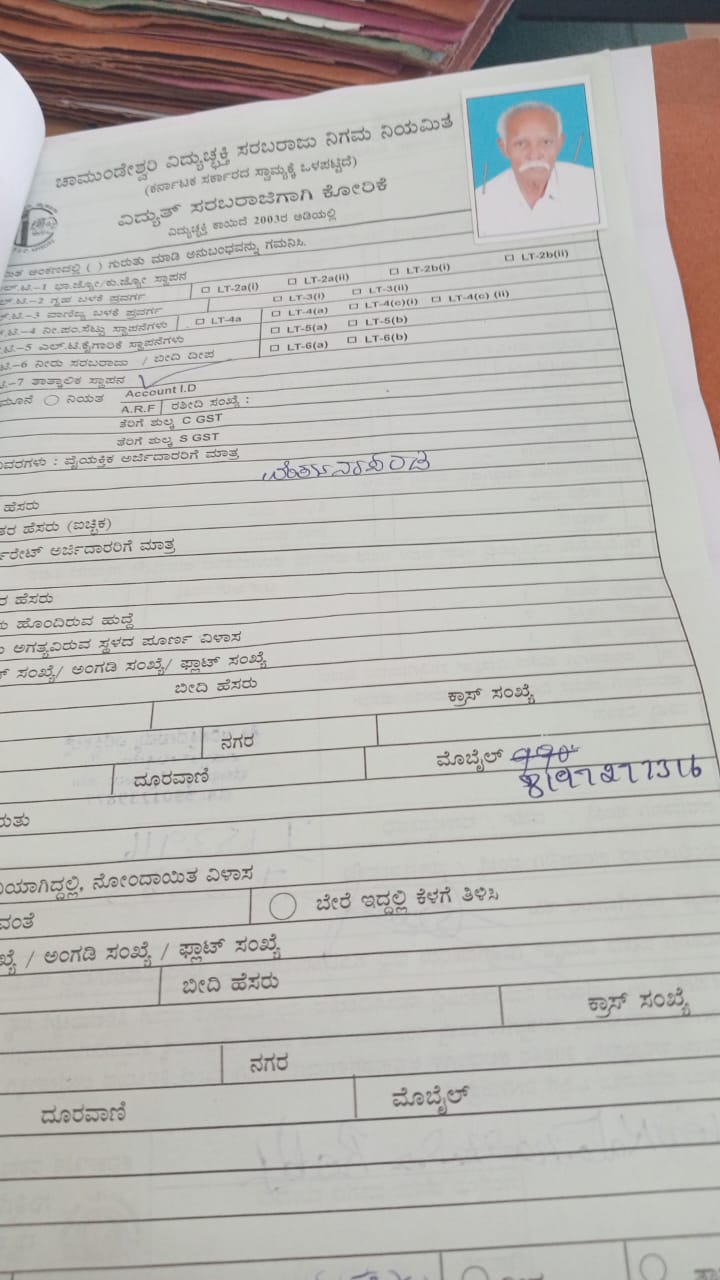 ಚಾಮುಂಡೇಶ್ವರಿ ವಿದ್ಯುಚ್ಛಕ್ತಿ ಸರಬರಾಜು ನಿಗಮ ನಿಯಮಿತ
(ಕರ್ನಾಟಕ ಸರ್ಕಾರದ ಸ್ವಾಮ್ಯಕ್ಕೆ ಒಳಪಟ್ಟಿದೆ)
ವಿದ್ಯುತ್ ಸರಬರಾಜಿಗಾಗಿ ಕೋರಿಕೆ
ವಿದ್ಯುಚ್ಛಕ್ತಿ ಕಾಯಿದೆ 2003ರ ಅಡಿಯಲ್ಲಿ
ಅಂಕಣದಲ್ಲಿ ( ) ಗುರುತು ಮಾಡಿ ಅನುಬಂಧವನ್ನು ಗಮನಿಸಿ.
–1 ಭಾ.ಜ್ಯೋ/ಕು.ಜ್ಯೋ ಸ್ಥಾಪನ
–2 ಗೃಹ ಬಳಕೆ ಪ್ರವರ್ಗ □ LT-2a(i) □ LT-2a(ii) □ LT-2b(i) □ LT-2b(ii)
–3 ವಾಣಿಜ್ಯ ಬಳಕೆ ಪ್ರವರ್ಗ □ LT-3(i) □ LT-3(ii)
–4 ನೀ.ಪಂ.ಸೆಟ್ಟು ಸ್ಥಾಪನೆಗಳು □ LT-4a □ LT-4(a) □ LT-4(c)(i) □ LT-4(c) (ii)
–5 ಎಲ್.ಟಿ.ಕೈಗಾರಿಕೆ ಸ್ಥಾಪನೆಗಳು □ LT-5(a) □ LT-5(b)
–6 ನೀರು ಸರಬರಾಜು / ಬೀದಿ ದೀಪ □ LT-6(a) □ LT-6(b)
–7 ತಾತ್ಕಾಲಿಕ ಸ್ಥಾಪನ
ನಿಯತ Account I.D
A.R.F ರಶೀದಿ ಸಂಖ್ಯೆ :
ತೆರಿಗೆ ಶುಲ್ಕ C GST
ತೆರಿಗೆ ಶುಲ್ಕ S GST
ವಿವರಗಳು : ವೈಯಕ್ತಿಕ ಅರ್ಜಿದಾರರಿಗೆ ಮಾತ್ರ
ಹೆಸರು
ಹೆಸರು (ಐಚ್ಛಿಕ)
ಅರ್ಜಿದಾರರಿಗೆ ಮಾತ್ರ
ಹೆಸರು
ಹೊಂದಿರುವ ಹುದ್ದೆ
ಅಗತ್ಯವಿರುವ ಸ್ಥಳದ ಪೂರ್ಣ ವಿಳಾಸ
ಸಂಖ್ಯೆ/ ಅಂಗಡಿ ಸಂಖ್ಯೆ/ ಫ್ಲಾಟ್ ಸಂಖ್ಯೆ
ಬೀದಿ ಹೆಸರು ಕ್ರಾಸ್ ಸಂಖ್ಯೆ
ನಗರ
ದೂರವಾಣಿ ಮೊಬೈಲ್
8197277316
ನೋಂದಾಯಿತ ವಿಳಾಸ
ಬೇರೆ ಇದ್ದಲ್ಲಿ ಕೆಳಗೆ ತಿಳಿಸಿ
/ ಅಂಗಡಿ ಸಂಖ್ಯೆ / ಫ್ಲಾಟ್ ಸಂಖ್ಯೆ
ಬೀದಿ ಹೆಸರು ಕ್ರಾಸ್ ಸಂಖ್ಯೆ
ನಗರ
ದೂರವಾಣಿ ಮೊಬೈಲ್